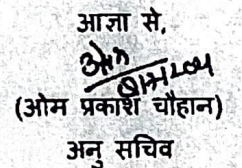 आज्ञा से,
(ओम प्रकाश चौहान)
अनु सचिव